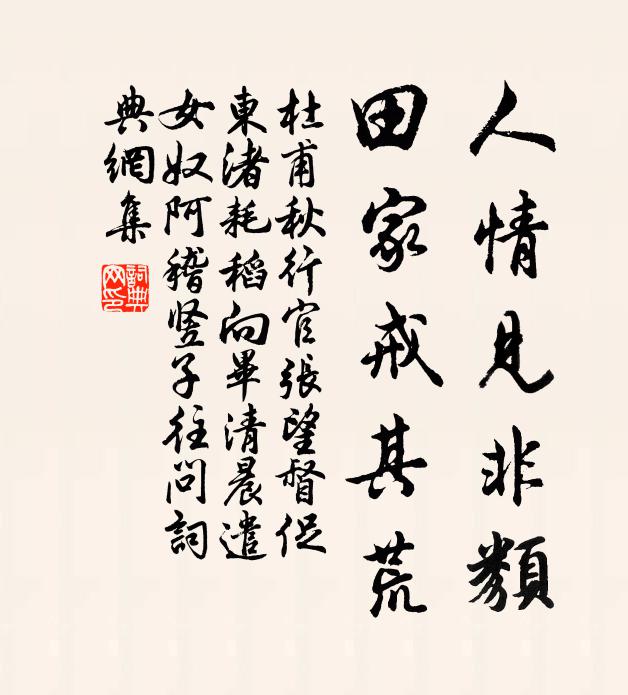 人情見非類
田家戒其荒
杜甫秋行官張望督促
東渚耗稻向畢清晨遣
女奴阿稽竖子往问詞
典網集
詞典網印